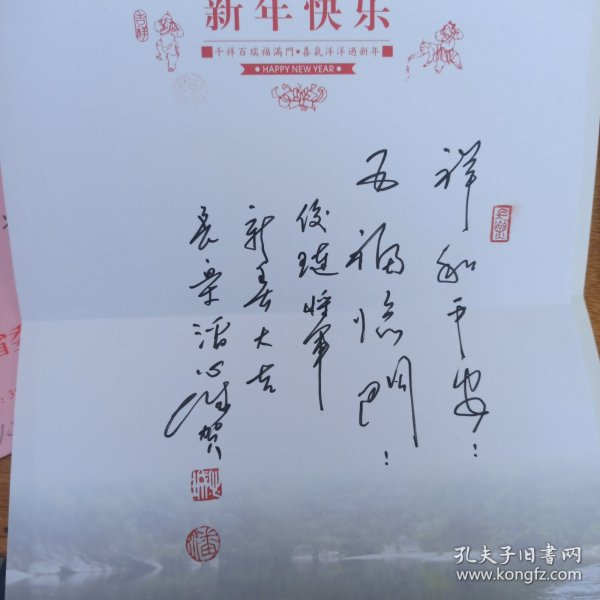 新年快乐
吉祥
千祥百瑞福满門•喜氣洋洋過新年
• HAPPY NEW YEAR •
祥和平安：
五福临門：
俊琏将军
新春大吉
心诚贺
孔夫子旧书网
www.kongfz.com